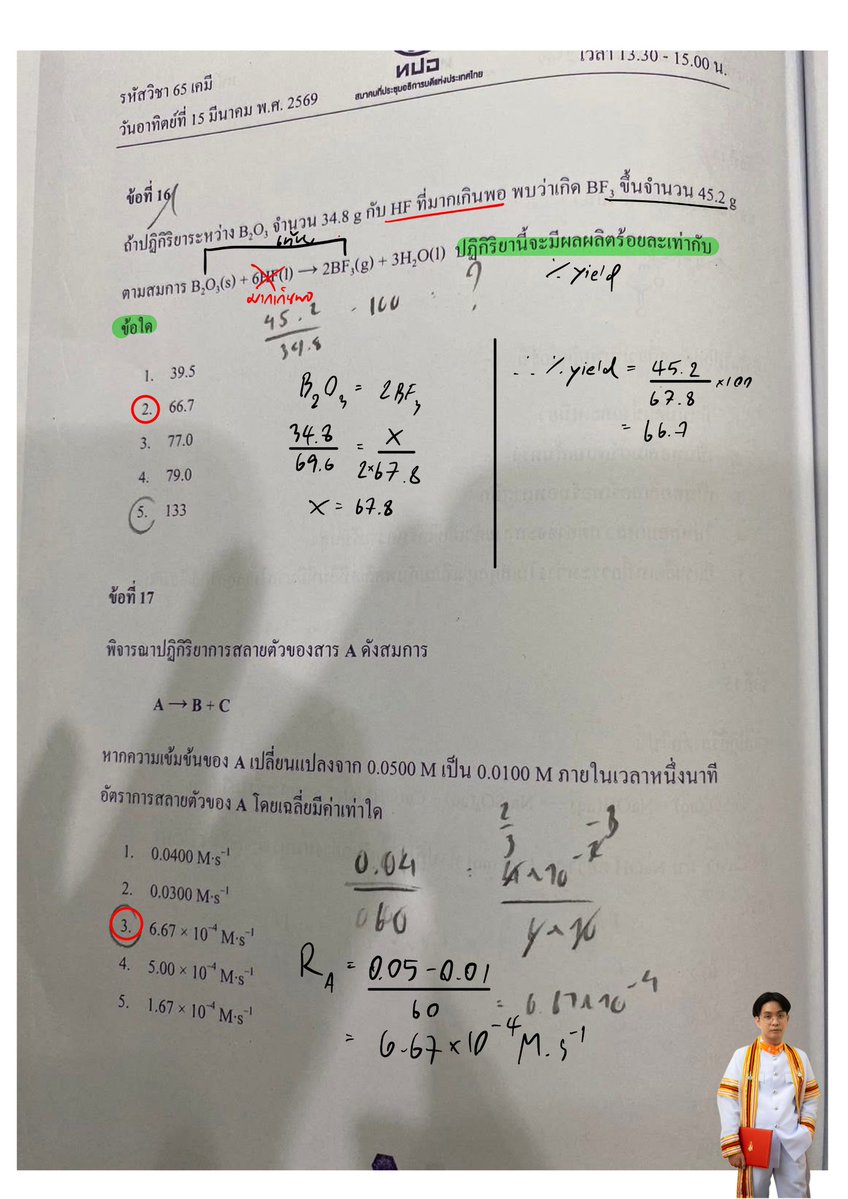 ทปอ
สมาคมที่ประชุมอธิการบดีแห่งประเทศไทย
รหัสวิชา 65 เคมี
เวลา 13.30 - 15.00 น.
วันอาทิตย์ที่ 15 มีนาคม พ.ศ. 2569
ข้อที่ 16
ถ้าปฏิกิริยาระหว่าง B₂O₃ จำนวน 34.8 g กับ HF ที่มากเกินพอ พบว่าเกิด BF₃ ขึ้นจำนวน 45.2 g
ตามสมการ B₂O₃(s) + 6HF(l) → 2BF₃(g) + 3H₂O(l) ปฏิกิริยานี้จะมีผลผลิตร้อยละเท่ากับ
มากเกินพอ
% yield
ข้อใด
45.2 / 34.8 · 100 = ?
1. 39.5
2. 66.7
3. 77.0
4. 79.0
5. 133
B₂O₃ = 2BF₃
34.8 / 69.6 = X / 2×67.8
X = 67.8
∴ % yield = 45.2 / 67.8 ×100
= 66.7
ข้อที่ 17
พิจารณาปฏิกิริยาการสลายตัวของสาร A ดังสมการ
A → B + C
หากความเข้มข้นของ A เปลี่ยนแปลงจาก 0.0500 M เป็น 0.0100 M ภายในเวลาหนึ่งนาที
อัตราการสลายตัวของ A โดยเฉลี่ยมีค่าเท่าใด
1. 0.0400 M·s⁻¹
2. 0.0300 M·s⁻¹
3. 6.67 × 10⁻⁴ M·s⁻¹
4. 5.00 × 10⁻⁴ M·s⁻¹
5. 1.67 × 10⁻⁴ M·s⁻¹
0.04 / 60
R_A = 0.05 - 0.01 / 60 = 6.67×10⁻⁴
= 6.67×10⁻⁴ M.s⁻¹